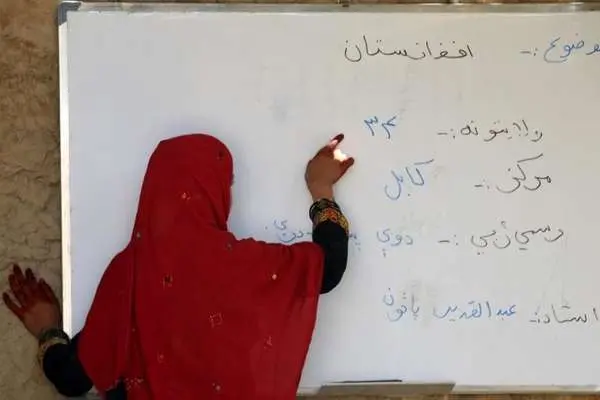 موضوع:- افغانستان
ولایتونه:- ۳۴
مرکز:- کابل
رسمي ژبي:- دوي دري
استاد:- عبدالقدیر